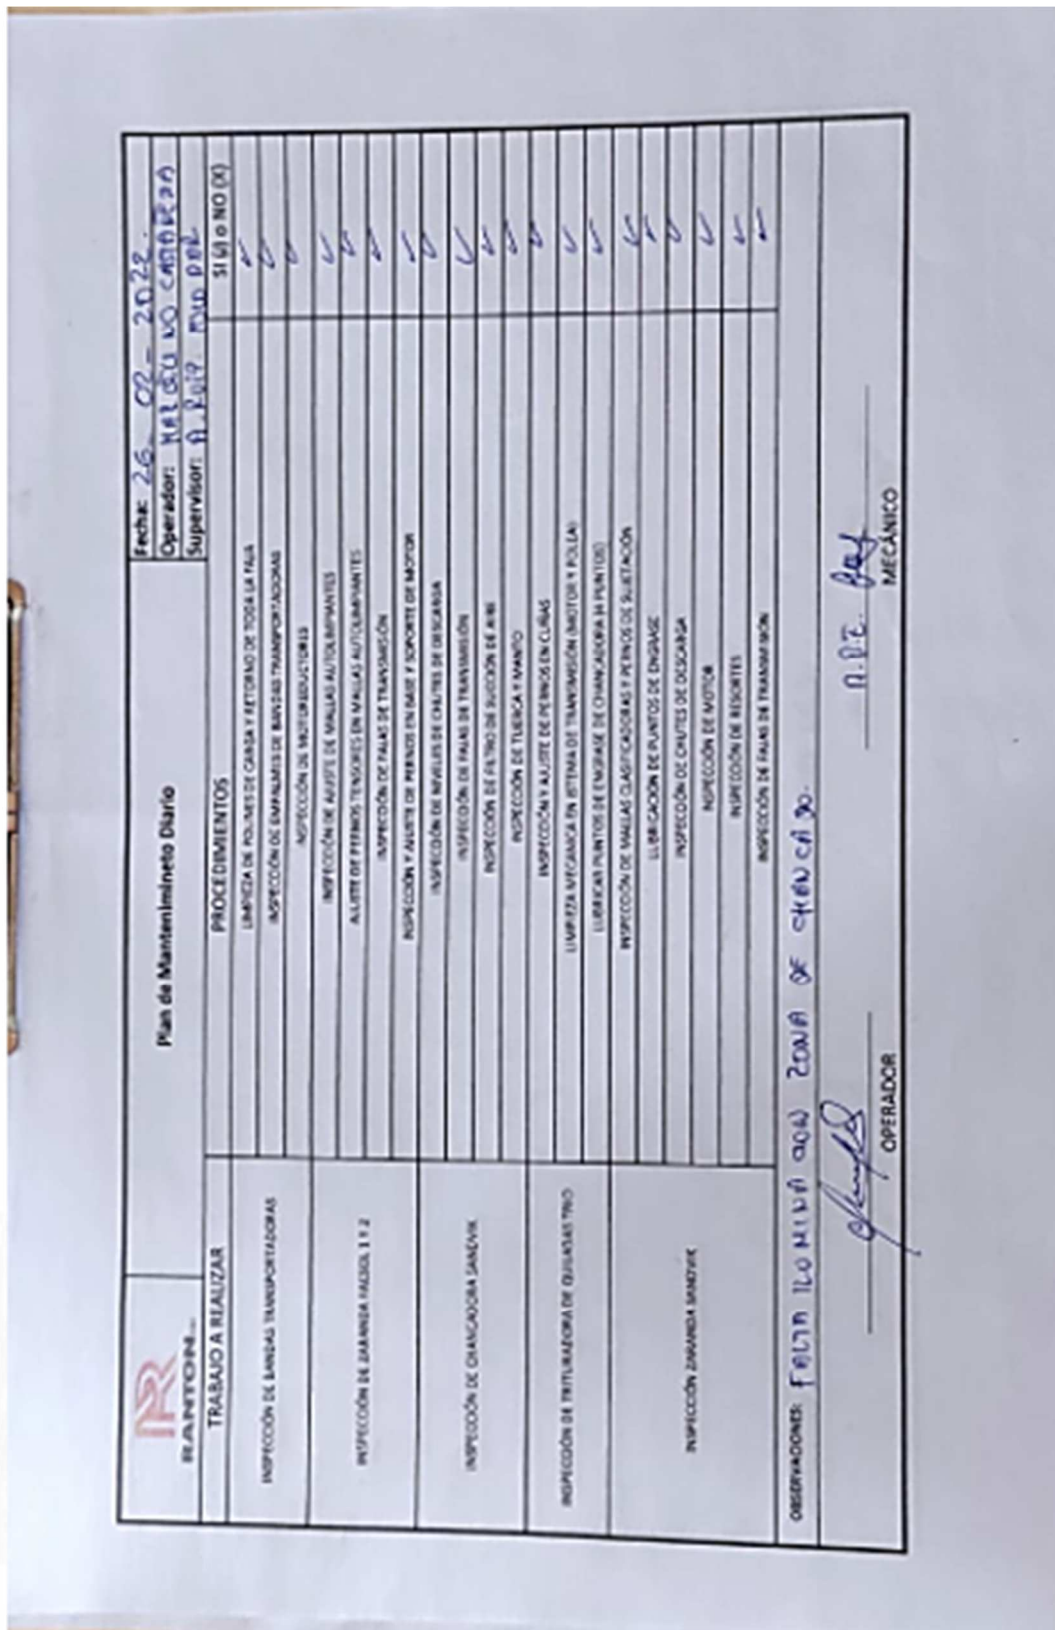 RANTON
Plan de Mantenimineto Diario
Fecha: 26 - 02 - 2022.
Operador:
Supervisor: A.
TRABAJO A REALIZAR PROCEDIMIENTOS SI (✓) o NO (X)
INSPECCIÓN DE BANDAS TRANSPORTADORAS
LIMPIEZA DE POLINES DE CARGA Y RETORNO DE TODA LA FAJA ✓
INSPECCIÓN DE EMPALMES DE BANDAS TRANSPORTADORAS ✓
INSPECCIÓN DE MOTOREDUCTORES ✓
INSPECCIÓN DE ZARANDA FACSOL 1 Y 2
INSPECCIÓN DE AJUSTE DE MALLAS AUTOLIMPIANTES ✓
AJUSTE DE PERNOS TENSORES EN MALLAS AUTOLIMPIANTES ✓
INSPECCIÓN DE FALAS DE TRANSMISIÓN ✓
INSPECCIÓN Y AJUSTE DE PERNOS EN BASE Y SOPORTE DE MOTOR ✓
INSPECCIÓN DE CHANCADORA SANDVIK
INSPECCIÓN DE NIVELES DE CHUTES DE DESCARGA ✓
INSPECCIÓN DE FALAS DE TRANSMISIÓN ✓
INSPECCIÓN DE FILTRO DE SUCCIÓN DE AIRE ✓
INSPECCIÓN DE TUERCA Y MANTO ✓
INSPECCIÓN DE TRITURADORA DE QUIJADAS TRIO
INSPECCIÓN Y AJUSTE DE PERNOS EN CUÑAS ✓
LIMPIEZA MECANICA EN SISTEMA DE TRANSMISIÓN (MOTOR Y POLEA) ✓
LUBRICAR PUNTOS DE ENGRASE DE CHANCADORA (4 PUNTOS) ✓
INSPECCIÓN ZARANDA SANDVIK
INSPECCIÓN DE MALLAS CLASIFICADORAS Y PERNOS DE SUJETACIÓN ✓
LUBRICACION DE PUNTOS DE ENGRASE ✓
INSPECCIÓN DE CHUTES DE DESCARGA ✓
INSPECCIÓN DE MOTOR ✓
INSPECCIÓN DE RESORTES ✓
INSPECCIÓN DE FALAS DE TRANSMISIÓN ✓
OBSERVACIONES: FALTA ZONA DE
OPERADOR MECÁNICO